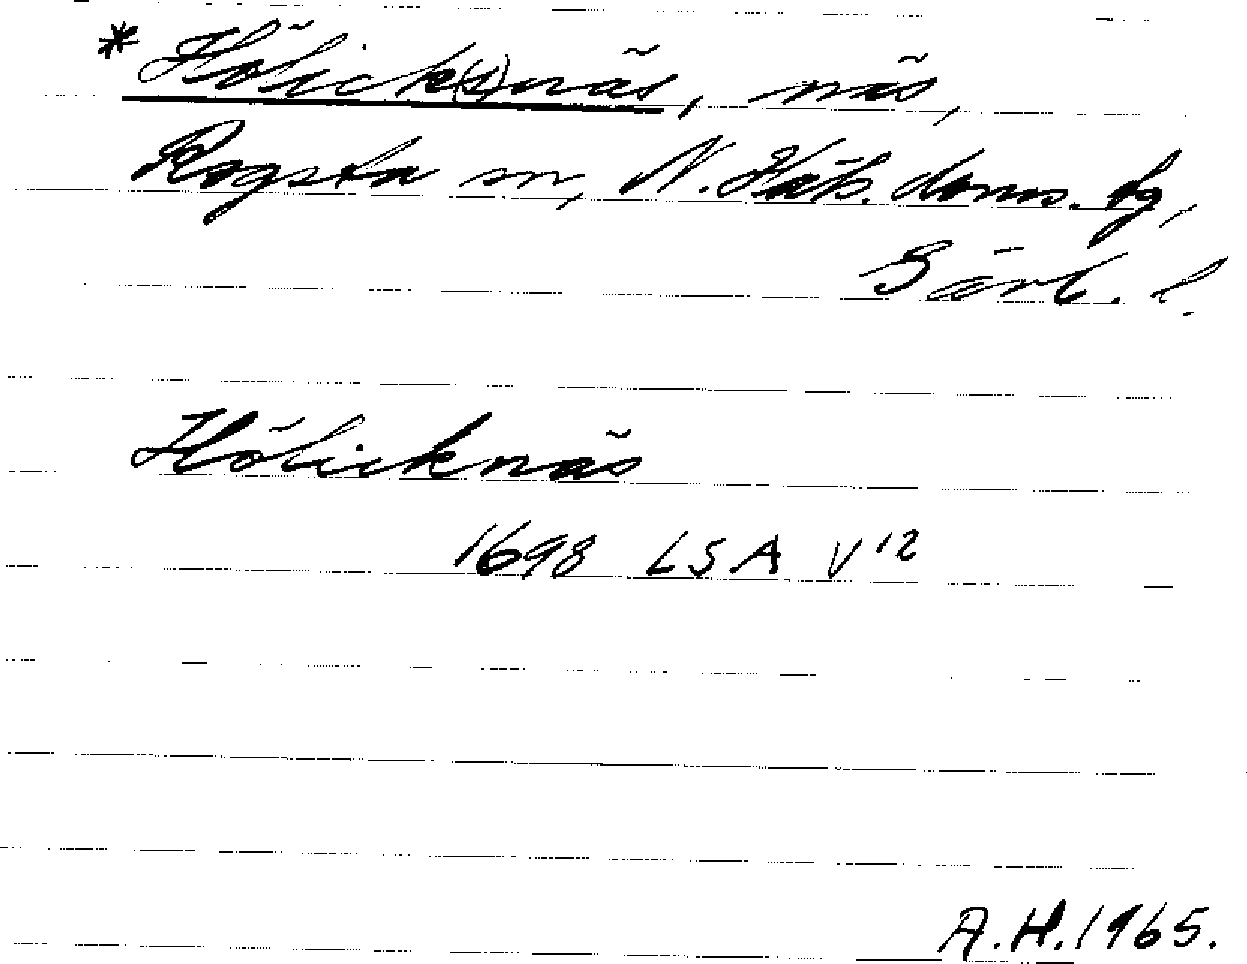 *Hölick(s)näs, näs,
Rogsta sn, N. Häls. doms. tg,
Gävb. l.
Hölicknäs
1698 LSA V 12
A.H. 1965.